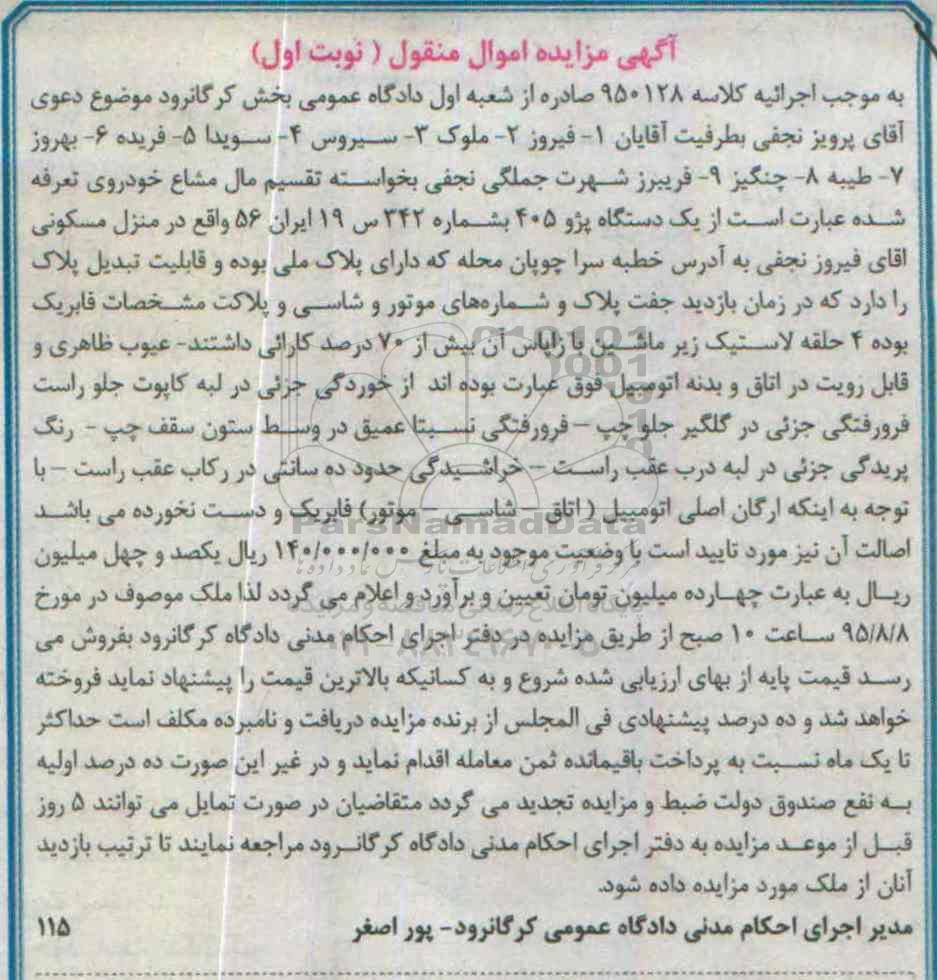 آگهی مزایده اموال منقول ( نوبت اول)
به موجب اجرائیه کلاسه ۹۵۰۱۲۸ صادره از شعبه اول دادگاه عمومی بخش کرگانرود موضوع دعوی
آقای پرویز نجفی بطرفیت آقایان ۱- فیروز ۲- ملوک ۳- سیروس ۴- سویدا ۵- فریده ۶- بهروز
۷- طیبه ۸- چنگیز ۹- فریبرز شهرت جملگی نجفی بخواسته تقسیم مال مشاع خودروی تعرفه
شده عبارت است از یک دستگاه پژو ۴۰۵ بشماره ۳۴۲ س ۱۹ ایران ۵۶ واقع در منزل مسکونی
اقای فیروز نجفی به آدرس خطبه سرا چوپان محله که دارای پلاک ملی بوده و قابلیت تبدیل پلاک
را دارد که در زمان بازدید جفت پلاک و شماره‌های موتور و شاسی و پلاکت مشخصات فابریک
بوده ۴ حلقه لاستیک زیر ماشین با زاپاس آن بیش از ۷۰ درصد کارائی داشتند- عیوب ظاهری و
قابل رویت در اتاق و بدنه اتومبیل فوق عبارت بوده اند از خوردگی جزئی در لبه کاپوت جلو راست
فرورفتگی جزئی در گلگیر جلو چپ – فرورفتگی نسبتا عمیق در وسط ستون سقف چپ - رنگ
پریدگی جزئی در لبه درب عقب راست – خراشیدگی حدود ده سانتی در رکاب عقب راست – با
توجه به اینکه ارگان اصلی اتومبیل (اتاق – شاسی – موتور) فابریک و دست نخورده می باشد
ParsNamadData
اصالت آن نیز مورد تایید است با وضعیت موجود به مبلغ ۱۴۰/۰۰۰/۰۰۰ ریال یکصد و چهل میلیون
ریال به عبارت چهارده میلیون تومان تعیین و برآورد و اعلام می گردد لذا ملک موصوف در مورخ
۹۵/۸/۸ ساعت ۱۰ صبح از طریق مزایده در دفتر اجرای احکام مدنی دادگاه کرگانرود بفروش می
رسد قیمت پایه از بهای ارزیابی شده شروع و به کسانیکه بالاترین قیمت را پیشنهاد نماید فروخته
خواهد شد و ده درصد پیشنهادی فی المجلس از برنده مزایده دریافت و نامبرده مکلف است حداکثر
تا یک ماه نسبت به پرداخت باقیمانده ثمن معامله اقدام نماید و در غیر این صورت ده درصد اولیه
به نفع صندوق دولت ضبط و مزایده تجدید می گردد متقاضیان در صورت تمایل می توانند ۵ روز
قبل از موعد مزایده به دفتر اجرای احکام مدنی دادگاه کرگانرود مراجعه نمایند تا ترتیب بازدید
آنان از ملک مورد مزایده داده شود.
مدیر اجرای احکام مدنی دادگاه عمومی کرگانرود- پور اصغر ۱۱۵